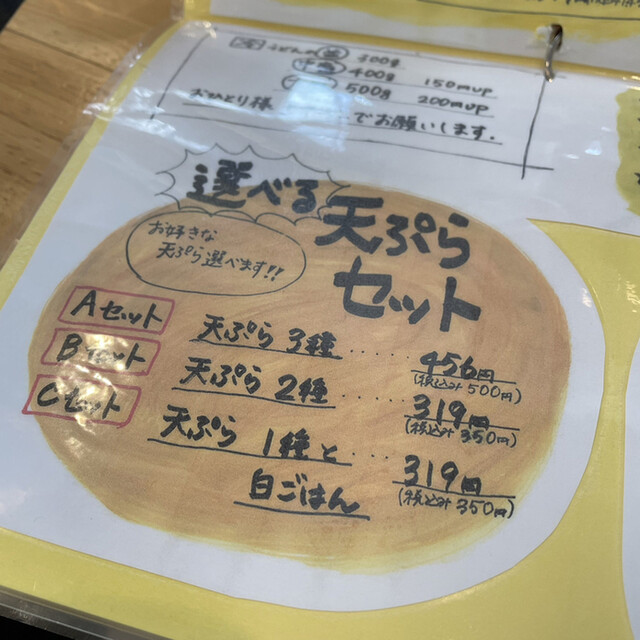 300g
400g 150円up
500g 200円up
おひとり様 でお願いします.
選べる
天ぷら
セット
お好きな
天ぷら選べます!!
Aセット 天ぷら 3種 ..... 456円
(税込み 500円)
Bセット 天ぷら 2種 ..... 319円
(税込み 350円)
Cセット 天ぷら 1種と ... 319円
白ごはん (税込み 350円)